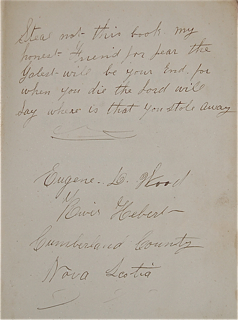 Steal not this book my
honest friend for fear the
Galest will be your End. for
when you die the Lord will
say where is that you stole away
Eugene L. Wood
River Hebert
Cumberland County
Nova Scotia